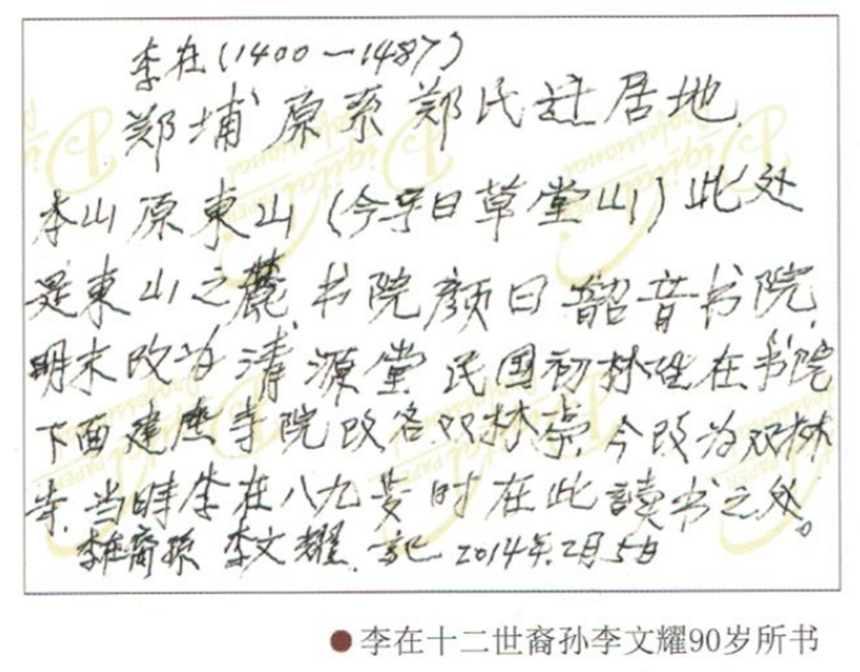 李在(1400—1487)
郑埔原系郑氏迁居地.
本山原東山(今字曰草堂山)此处
是東山之麓.书院颜曰韶音书院.
明末改为清源堂民国初林性在书院
下面建應寺院改名双林崇.今改为双林
寺.当时李在八九岁时在此讀书之处。
李在裔孙 李文耀.记 2014年.2月5日
●李在十二世裔孙李文耀90岁所书